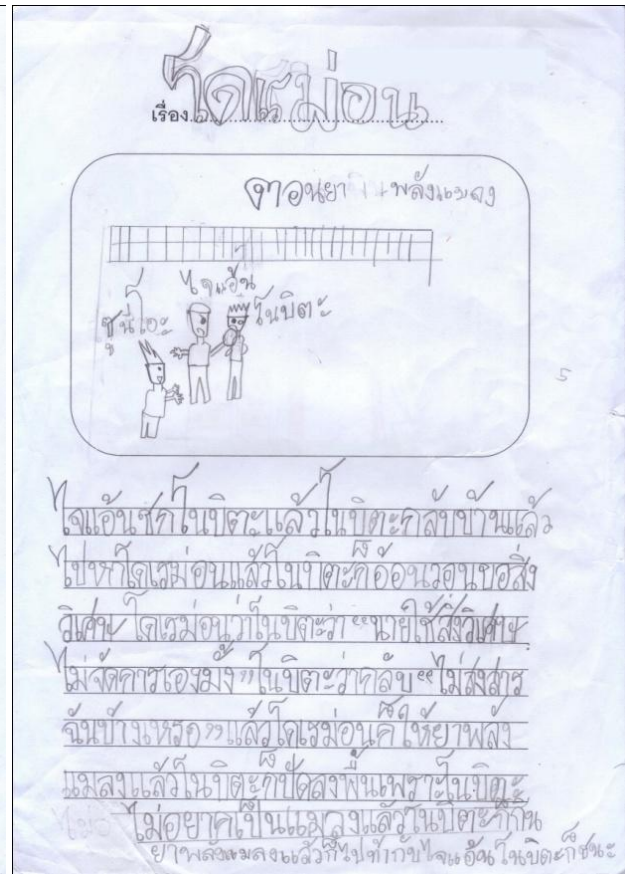 เรื่อง โดเรม่อน
ตอนยา พลังแมลง
ไจแอ้น
ซูนีโอะ
โนบิตะ
5
ไจแอ้นชกโนบิตะแล้วโนบิตะกลับบ้านแล้ว
ไปหาโดเรม่อนแล้วโนบิตะก็อ้อนวอนขอสิ่ง
วิเศษ โดเรม่อนว่าโนบิตะว่า “นายใช้สิ่งวิเศษ
ไม่จัดการเองมั้ง” โนบิตะว่ากลับ “ไม่สงสาร
ฉันบ้างเหรอ” แล้วโดเรม่อนก็ให้ยาพลัง
แมลงแล้วโนบิตะก็ปัดลงพื้นเพราะโนบิตะ
ไม่อยากเป็นแมลงแล้วโนบิตะก็กิน
ยาพลังแมลงแล้วก็ไปท้ากับไจแอ้นโนบิตะก็ชนะ